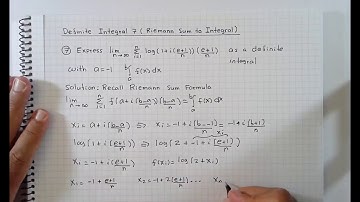 Definite Integral 7 (Riemann Sum to Integral)
⑦ Express lim n→∞ Σ i=1 n log(1+i(e+1)/n)(e+1)/n as a definite integral
with a=-1 ∫ a b f(x)dx
Solution: Recall Riemann Sum Formula
lim n→∞ Σ i=1 n f(a+i(b-a)/n)(b-a)/n = ∫ a b f(x)dx
xi = a+i(b-a)/n ⇒ xi = -1+i[b--1]/n = -1+i[b+1]/n
log(1+i(e+1)/n) ⇒ log(2+-1+i[e+1]/n) xi
xi = -1+i(e+1)/n f(xi) = log(2+xi)
x1 = -1+(e+1)/n x2 = -1+2(e+1)/n ... xn